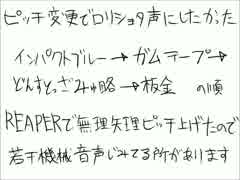 ピッチ変更でロリショタ声にしたかった
インパクトブルー→ガムテープ→
どんすとっざみゅ略→板金 の順
REAPERで無理矢理ピッチ上げたので
若干機械音声じみてる所があります